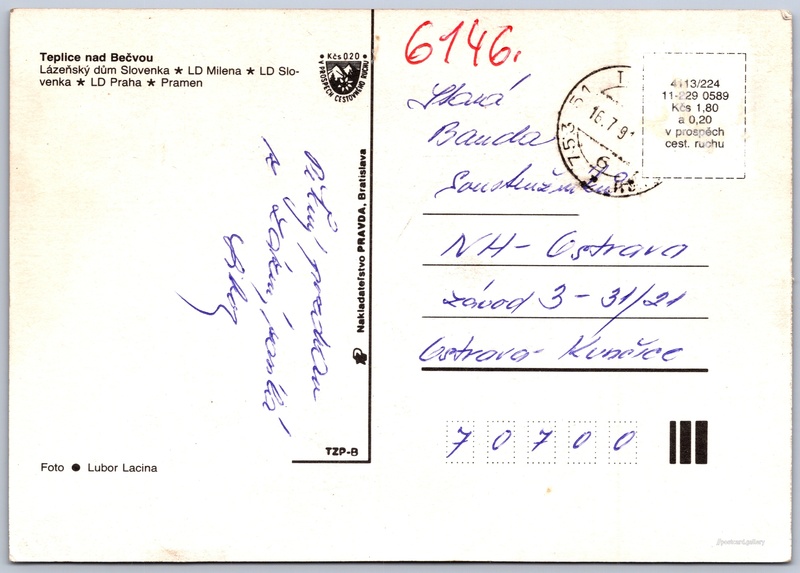 Teplice nad Bečvou
Lázeňský dům Slovenka ★ LD Milena ★ LD Slo-
venka ★ LD Praha ★ Pramen
Kčs 0,20
V PROSPĚCH CESTOVNÍHO RUCHU
z Lázní
Nakladateľstvo PRAVDA, Bratislava
TZP-B
Foto ● Lubor Lacina
6146.
753 51
16.7.91
4113/224
11-229 0589
Kčs 1,80
a 0,20
v prospěch
cest. ruchu
Stará
Banda
NH - Ostrava
závod 3 - 31/21
Ostrava - Kunčice
7 0 7 0 0